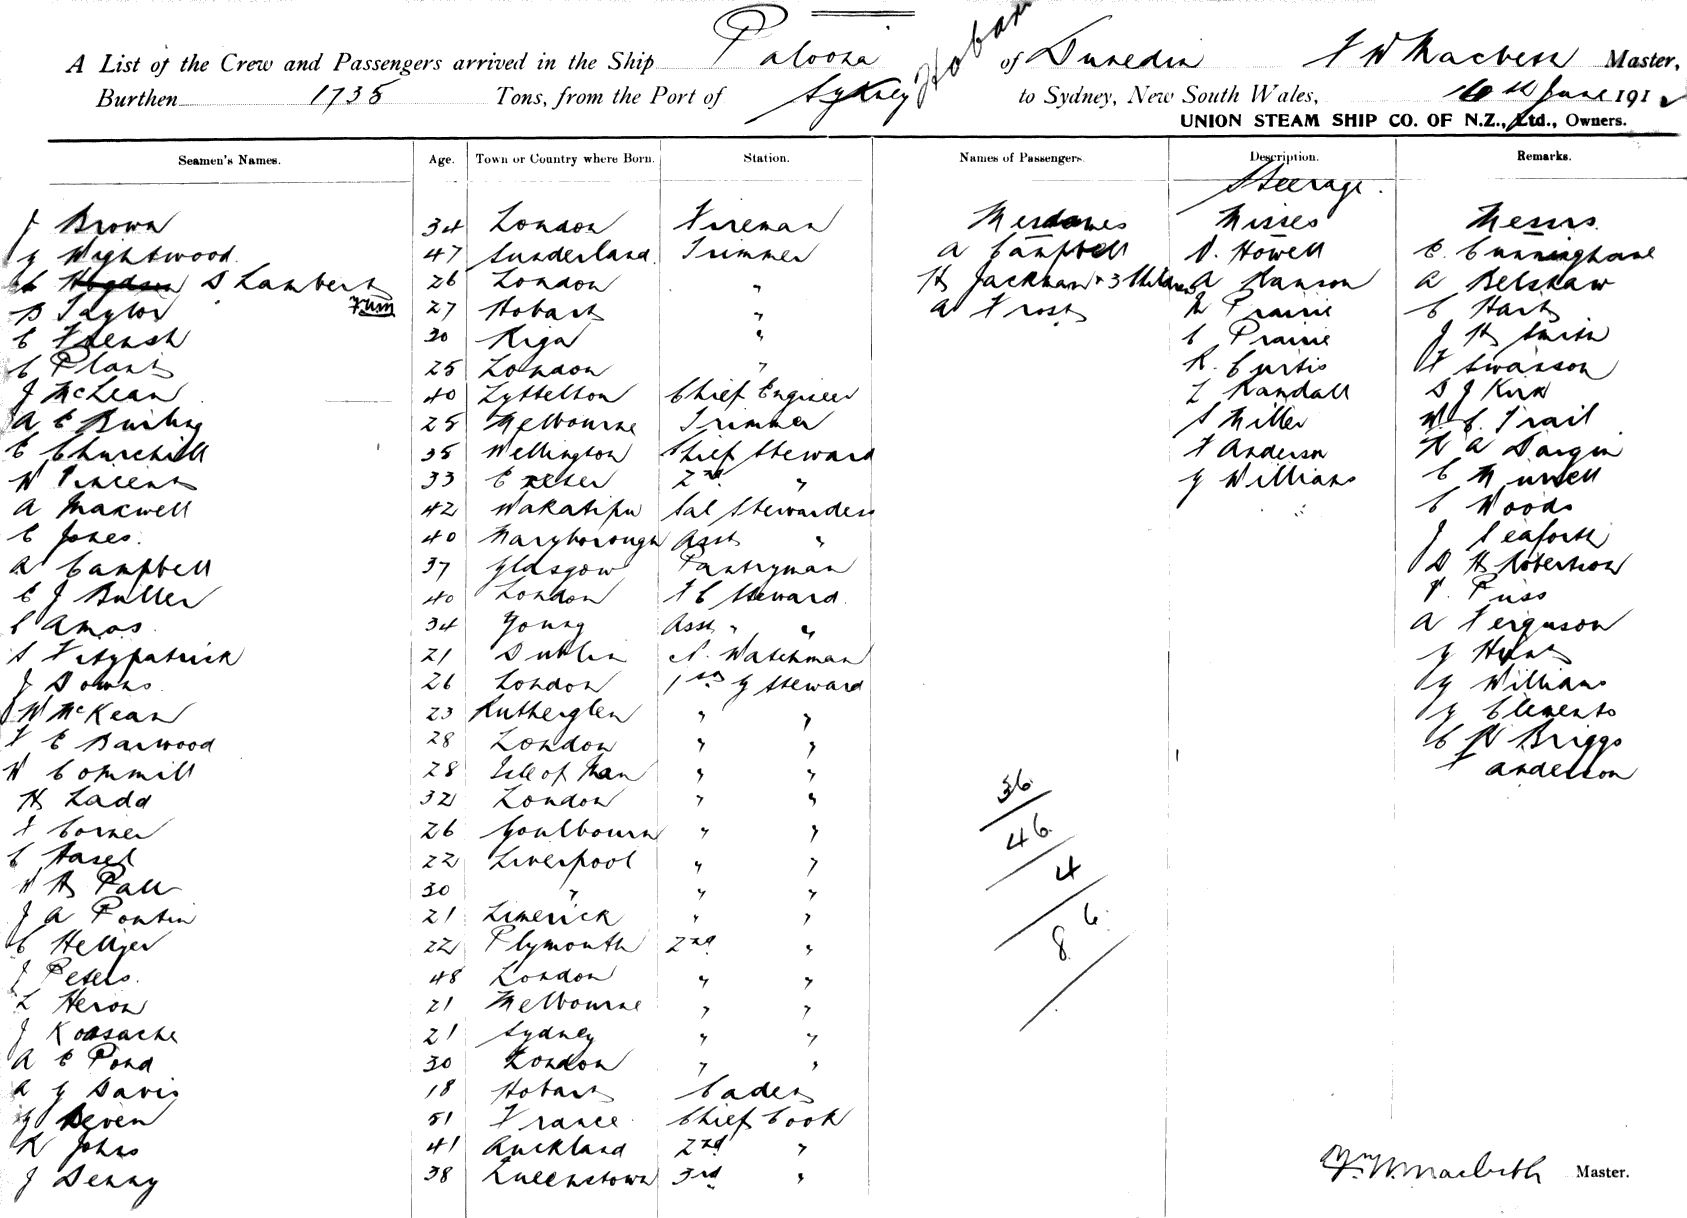 A List of the Crew and Passengers arrived in the Ship Paloona of Dunedin F W Macbeth Master,
Burthen 1735 Tons, from the Port of Sydney Hobart to Sydney, New South Wales, 16th June 1912
UNION STEAM SHIP CO. OF N.Z., Ltd., Owners.
Seamen's Names. Age. Town or Country where Born. Station. Names of Passengers. Description. Remarks.
Steerage.
J Brown 34 London Fireman Mesdames Misses Messrs
G Wightwood 47 Sunderland Trimmer A Campbell V. Howell E. Cunninghame
S Lambert 26 London " H Jackman & 3 Children A Hanson A Belshaw
B Taylor 27 Hobart " A Frost N Prairie C Hart
C French 30 Riga " C Prairie J H Smith
C Plant 25 London " R. Curtis F Swanson
J McLean 40 Lyttelton Chief Engineer L Randall D J Kirk
A E 25 Melbourne Trimmer S Miller W. C. Trail
E Churchill 35 Wellington Chief Steward F Anderson H A Dargin
W Vincent 33 Exeter 2nd " G Williams C Murrell
A Maxwell 42 Wakatipu Sal Stewardess C Woods
C Jones. 40 Maryborough Asst " J Seaforth
A Campbell 37 Glasgow Pantryman D H Robertson
E J Butler 40 London F C Steward. P. Puss
C Amos 34 Young Asst " " A Ferguson
S Fitzpatrick 21 Dublin N. Watchman G Hunt
J Downs 26 London 1st G Steward G Williams
W McKean 23 Rutherglen " " G Clements
F E Barwood 28 London " " C H Briggs
W Commill 28 Isle of Man " " F Anderson
H Ladd 32 London " "
F Corner 26 Goulbourn " "
C Hasel 22 Liverpool " "
W H Pall 30 " " "
J A Pontin 21 Limerick " "
C Hellyer 22 Plymouth 2nd "
J Peters. 48 London " "
L Heron 21 Melbourne " "
J 21 Sydney " "
A E Pond 30 London " "
A G Davis 18 Hobart Cadet
G Deven 51 France Chief Cook
R Johns 41 Auckland 2nd "
J Denny 38 Queenstown 3rd "
36
46
4
86
Wm W. Macbeth Master.